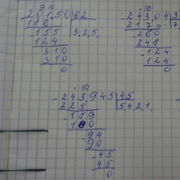 201,50 62
186 3,25
155
124
310
310
0
10
243,04 3
217 7
260
248
124
124
0
10
243945 45
225 5,421
189
180
94
90
45
45
0